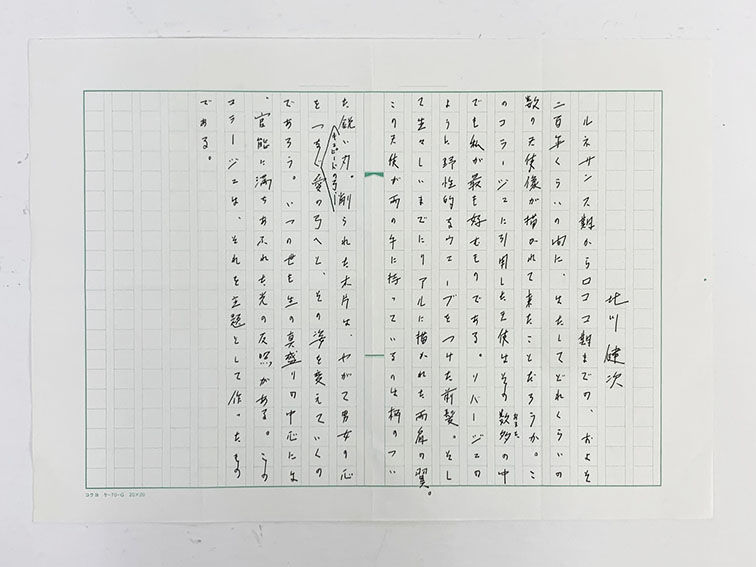 北川健次
ルネサンス期からロココ期までの、およそ
二百年くらいの間に、はたしてどれくらいの
数の天使像が描かれて来たことだろうか。こ
のコラージュに引用した天使はその数多の中
あまた
でも私が最も好むものである。リバージュの
ように野性的なウェーブをつけた前髪。そし
て生々しいまでにリアルに描かれた両肩の翼。
この天使が両の手に持っているのは柄のつい
た鋭い刃。削られた木片は、やがて男女の心
キューピッドの弓
をつなぐ愛の弓へと、その姿を変えていくの
であろう。いつの世も生の真盛りの中心には
、官能に満ちあふれた光の反照がある。この
コラージュは、それを主題として作ったもの
である。
コクヨ ケ-10 20×20